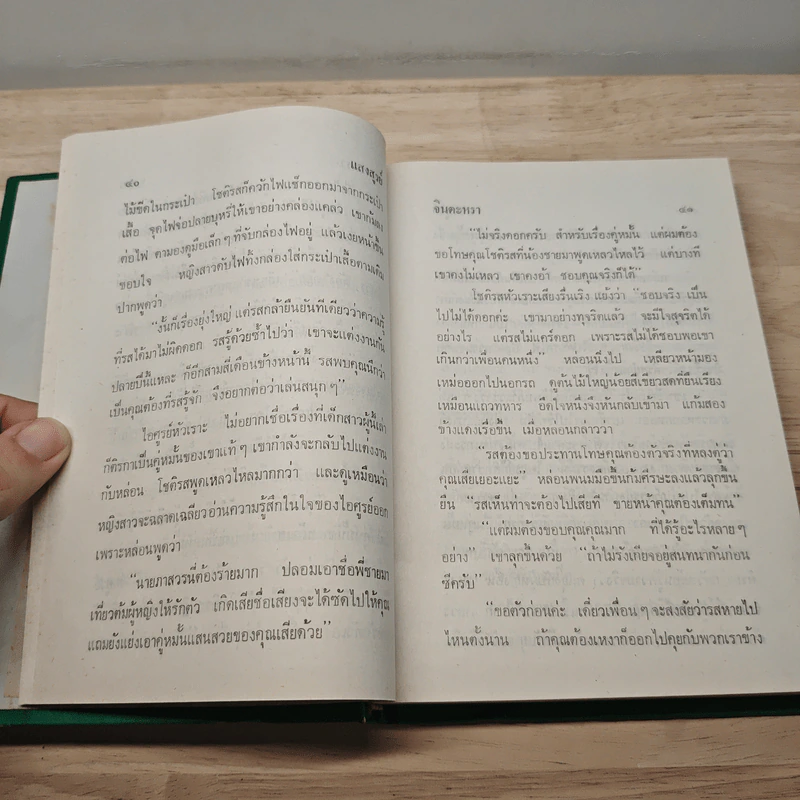 ๔๐
แสงสูรย์
ไม้ขีดในกระเป๋า โชติรสก็ควักไฟแช็กออกมาจากกระเป๋า
เสื้อ จุดไฟจ่อปลายบุหรี่ให้เขาอย่างคล่องแคล่ว เขาก้มลง
ต่อไฟ ตามองดูมือเล็กๆ ที่จับกล่องไฟอยู่ แล้วเงยหน้าขึ้น
ขอบใจ หญิงสาวดับไฟทิ้งกล่องใส่กระเป๋าเสื้อตามเดิม
ปากพูดว่า
“งั้นก็เรื่องยุ่งใหญ่ แต่รสกล้ายืนยันทีเดียวว่าความรู้
ที่รสได้มาไม่ผิดดอก รสรู้ด้วยซ้ำไปว่า เขาจะแต่งงานกัน
ปลายปีนี้แหละ ก็อีกสามสี่เดือนข้างหน้านี้ รสพบคุณนึกว่า
เป็นคุณต้องที่รสรู้จัก จึงอยากต่อว่าเล่นสนุกๆ”
ไอศูรย์หัวเราะ ไม่อยากเชื่อเรื่องที่เด็กสาวผู้นี้เล่า
ก็ติรกาเป็นคู่หมั้นของเขาแท้ๆ เขากำลังจะกลับไปแต่งงาน
กับหล่อน โชติรสพูดเหลวไหลมากกว่า และดูเหมือนว่า
หญิงสาวจะฉลาดเฉลียวอ่านความรู้สึกในใจของไอศูรย์ออก
เพราะหล่อนพูดว่า
“นายภาสวรนี่ต้องร้ายมาก ปลอมเอาชื่อพี่ชายมา
เที่ยวต้มผู้หญิงให้รักตัว เกิดเสียชื่อเสียงจะได้ซัดไปให้คุณ
แถมยังแย่งเอาคู่หมั้นแสนสวยของคุณเสียด้วย”
จินตะหรา
๔๑
“ไม่จริงดอกครับ สำหรับเรื่องคู่หมั้น แต่ผมต้อง
ขอโทษคุณโชติรสที่น้องชายมาพูดเหลวไหลไว้ แต่บางที
เขาคงไม่เหลว เขาคงอ้า ชอบคุณจริงก็ได้”
โชติรสหัวเราะเสียงรื่นเริง แย้งว่า “ชอบจริง เป็น
ไปไม่ได้ดอกค่ะ เขามาอย่างทุจริตแล้ว จะมีใจสุจริตได้
อย่างไร แต่รสไม่แคร์ดอก เพราะรสไม่ได้ชอบพอเขา
เกินกว่าเพื่อนคนหนึ่ง” หล่อนนิ่งไป เหลียวหน้ามอง
เหม่อออกไปนอกรถ ดูต้นไม้ใหญ่น้อยสีเขียวสดที่ยืนเรียง
เหมือนแถวทหาร อึดใจหนึ่งจึงหันกลับเข้ามา แก้มสอง
ข้างแดงเรื่อขึ้น เมื่อหล่อนกล่าวว่า
“รสต้องขอประทานโทษคุณต้องตัวจริงที่หลงดู่ว่า
คุณเสียเยอะแยะ” หล่อนพนมมือขึ้นก้มศีรษะลงแล้วลุกขึ้น
ยืน “รสเห็นท่าจะต้องไปเสียที ขายหน้าคุณต้องเต็มทน”
“แต่ผมต้องขอบคุณคุณมาก ที่ได้รู้อะไรหลายๆ
อย่าง” เขาลุกขึ้นด้วย “ถ้าไม่รังเกียจอยู่สนทนากันก่อน
ซีครับ”
“ขอตัวก่อนค่ะ เดี๋ยวเพื่อนๆ จะสงสัยว่ารสหายไป
ไหนตั้งนาน ถ้าคุณต้องเหงาก็ออกไปคุยกับพวกเราข้าง